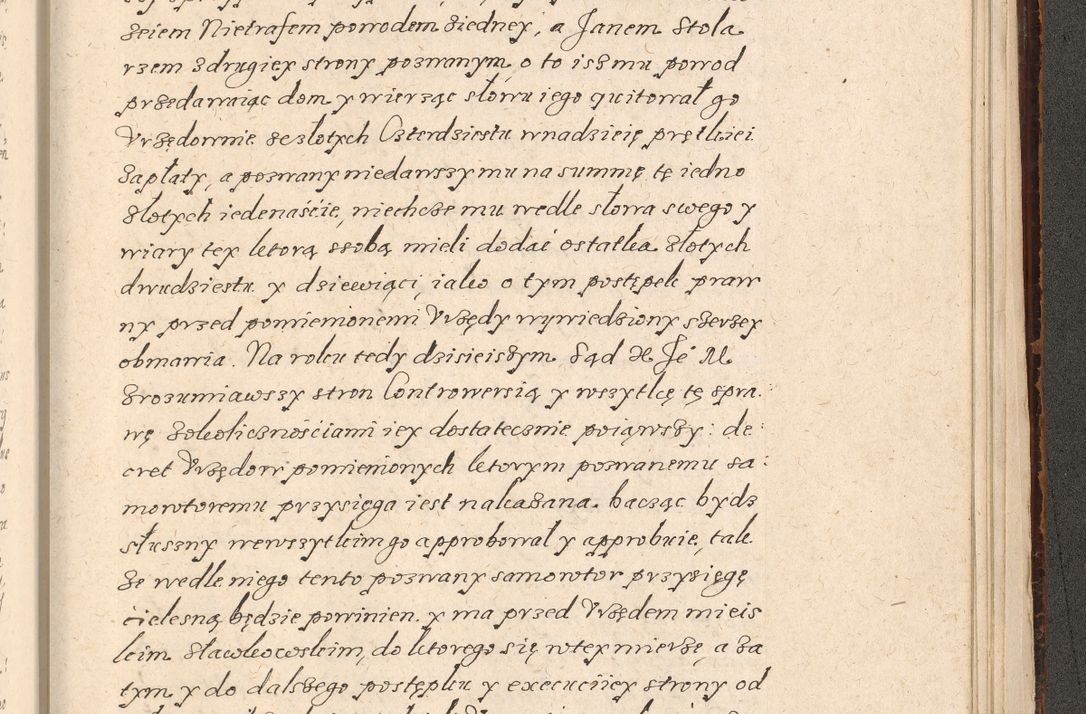 żeiem Nietrafem powodem ziedney, a Janem Stola
rzem zdrugiey strony pozwanym, o to iszmu powod
przedawaiąc dom y wierząc słowu iego quitował go
Vrzędownie ze złotych Czterdziestu wnadzieię prętkiei
Zapłaty, a pozwany niedawszy mu na summę tę iedno
Złotych iedenaście, niechcże mu wedle słowa swego y
wiary tey ktorą zsobą mieli dodać ostatka złotych
dwudziestu y dziewiąci, iako o tym postępek praw
ny przed pomienionemi Vrzędy wywiedziony szerzey
obmawia. Na roku tedy dzisieiszym Sąd Je M
Zrozumiawszy stron Controwersią y wszytkę tę spra:
wę zokolicznościami iey dostatecznie poiąwszy: de:
cret Vrzędow pomienionych ktorym pozwanemu sa:
mowtoremu przysięga iest nakazana. bacząc bydz
słuszny wewszytkim go approbował y approbuie, tak
że wedle niego tento pozwany samowtor przysięgę
cielesną będzie powinien y ma przed Vrzędem mieis
kim Sławkowskim, do ktorego się wtey mierze, a za
tym y do dalszego postępku y execuciiey strony od